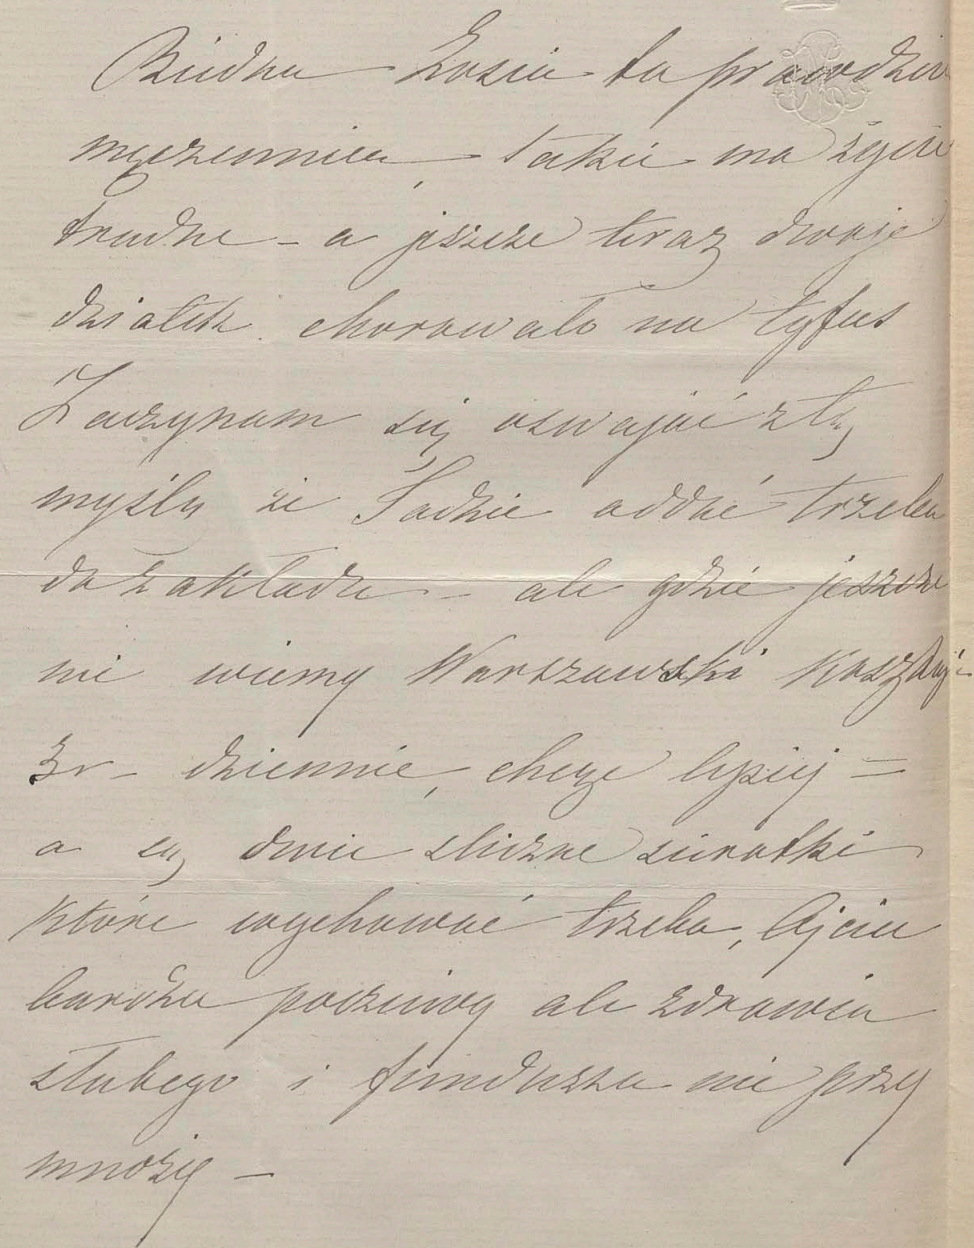 Biedna Zosia to prawdziwa
męczennica – takie ma życie
trudne – a jeszcze teraz dwoje
dziatek chorowało na tyfus
Zaczynam się oswajać z tą
myślą że Tadzia oddać trzeba
do zakładu – ale gdzie jeszcze
nie wiemy Warszawski kosztuje
3r – dziennie, chcę lepiej =
a są dwie śliczne sierotki
które wychować trzeba, Ojciec
bardzo poczciwy ale zdrowia
słabego i funduszu nie przy
mnoży –